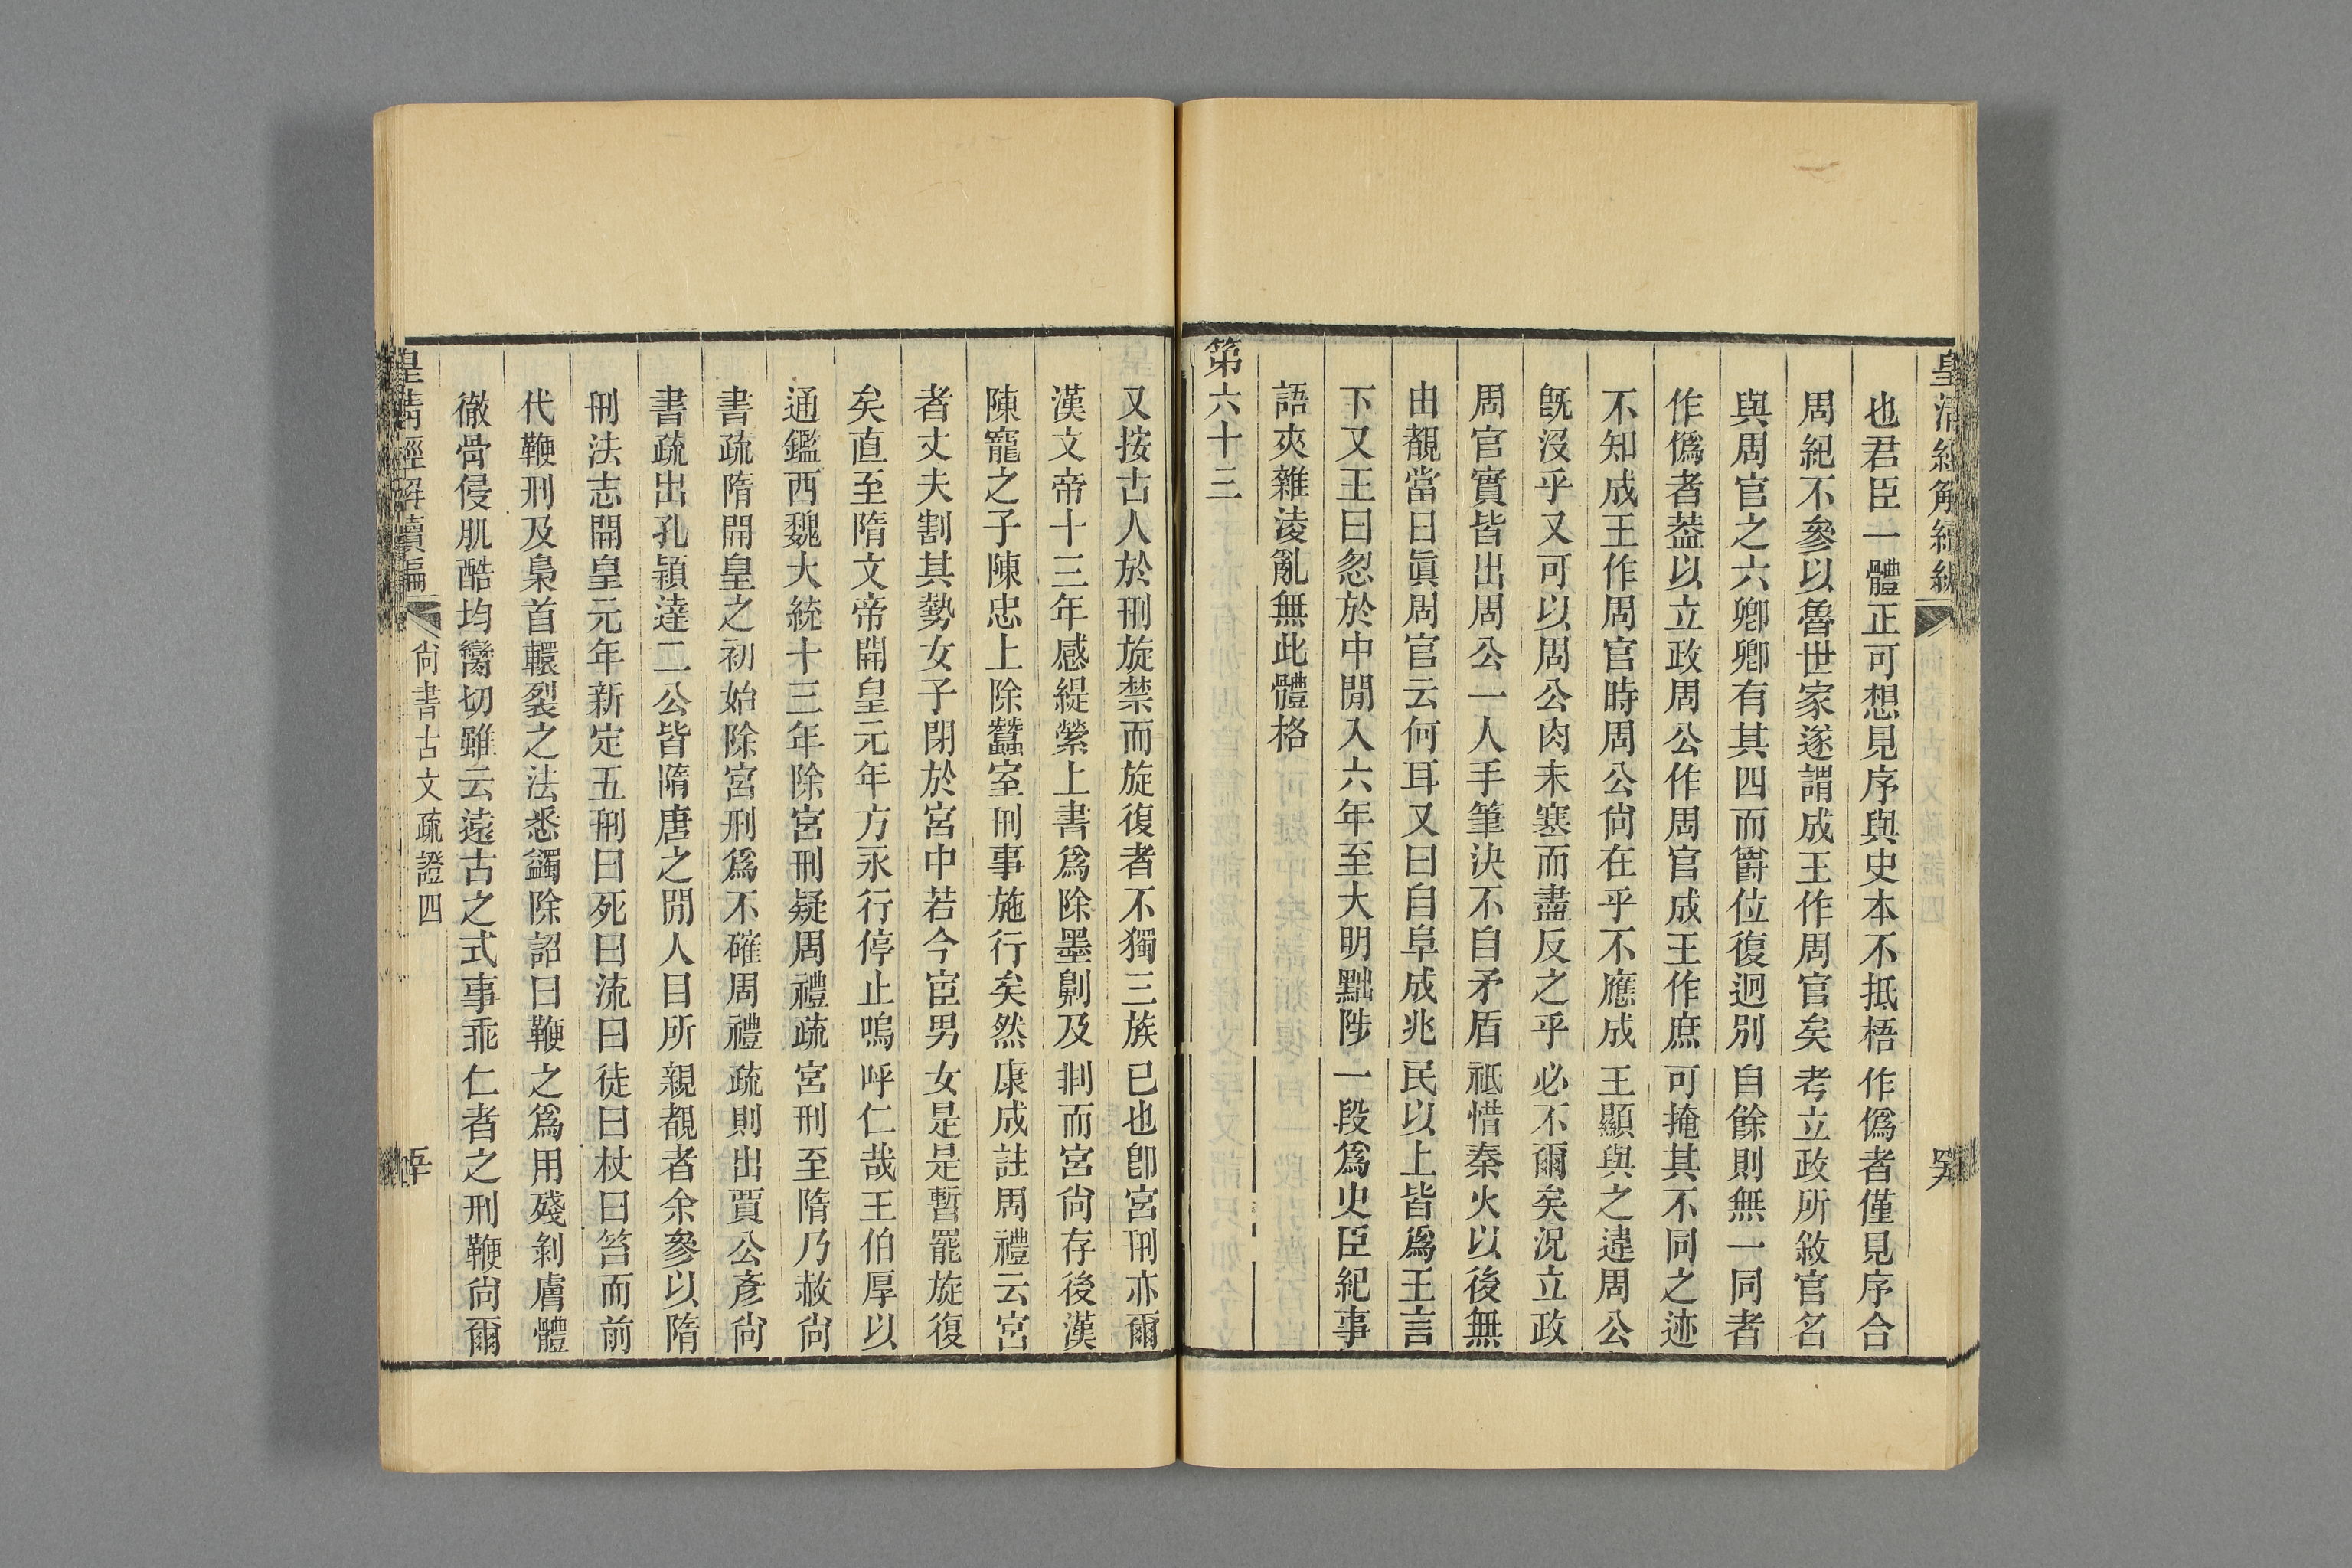 皇清經解續編
也君臣一體正可想見序與史本不抵梧作僞者僅見序合
周紀不參以魯世家遂謂成王作周官矣考立政所敘官名
與周官之六卿卿有其四而爵位復迥別自餘則無一同者
作僞者葢以立政周公作周官成王作庶可掩其不同之迹
不知成王作周官時周公尙在乎不應成王顯與之違周公
旣沒乎又可以周公肉未寒而盡反之乎必不爾矣況立政
周官實皆出周公一人手筆決不自矛盾祗惜秦火以後無
由覩當日眞周官云何耳又曰自阜成兆民以上皆爲王言
下又王曰忽於中閒入六年至大明黜陟一段爲史臣紀事
語夾雜淩亂無此體格
第六十三
又按古人於刑旋禁而旋復者不獨三族已也卽宮刑亦爾
漢文帝十三年感緹縈上書爲除墨劓及剕而宮尙存後漢
陳寵之子陳忠上除蠶室刑事施行矣然康成註周禮云宮
者丈夫割其勢女子閉於宮中若今宦男女是是暫罷旋復
矣直至隋文帝開皇元年方永行停止嗚呼仁哉王伯厚以
通鑑西魏大統十三年除宮刑疑周禮疏宮刑至隋乃赦尙
書疏隋開皇之初始除宮刑爲不確周禮疏則出賈公彥尙
書疏出孔穎達二公皆隋唐之閒人目所親覩者余參以隋
刑法志開皇元年新定五刑曰死曰流曰徒曰杖曰笞而前
代鞭刑及梟首轘裂之法悉蠲除詔曰鞭之爲用殘剝膚體
徹骨侵肌酷均臠切雖云遠古之式事乖仁者之刑鞭尙爾
皇清經解續編 尙書古文疏證四